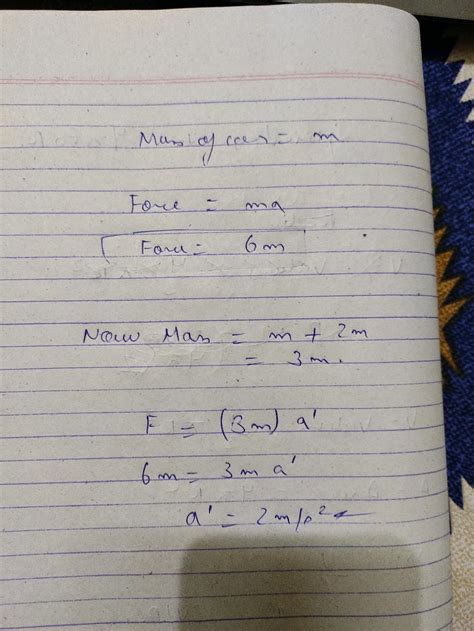 Mass of car = m
Force = ma
Force = 6m
Now Mass = m + 2m
= 3m.
F = (3m) a'
6m = 3m a'
a' = 2 m/s²